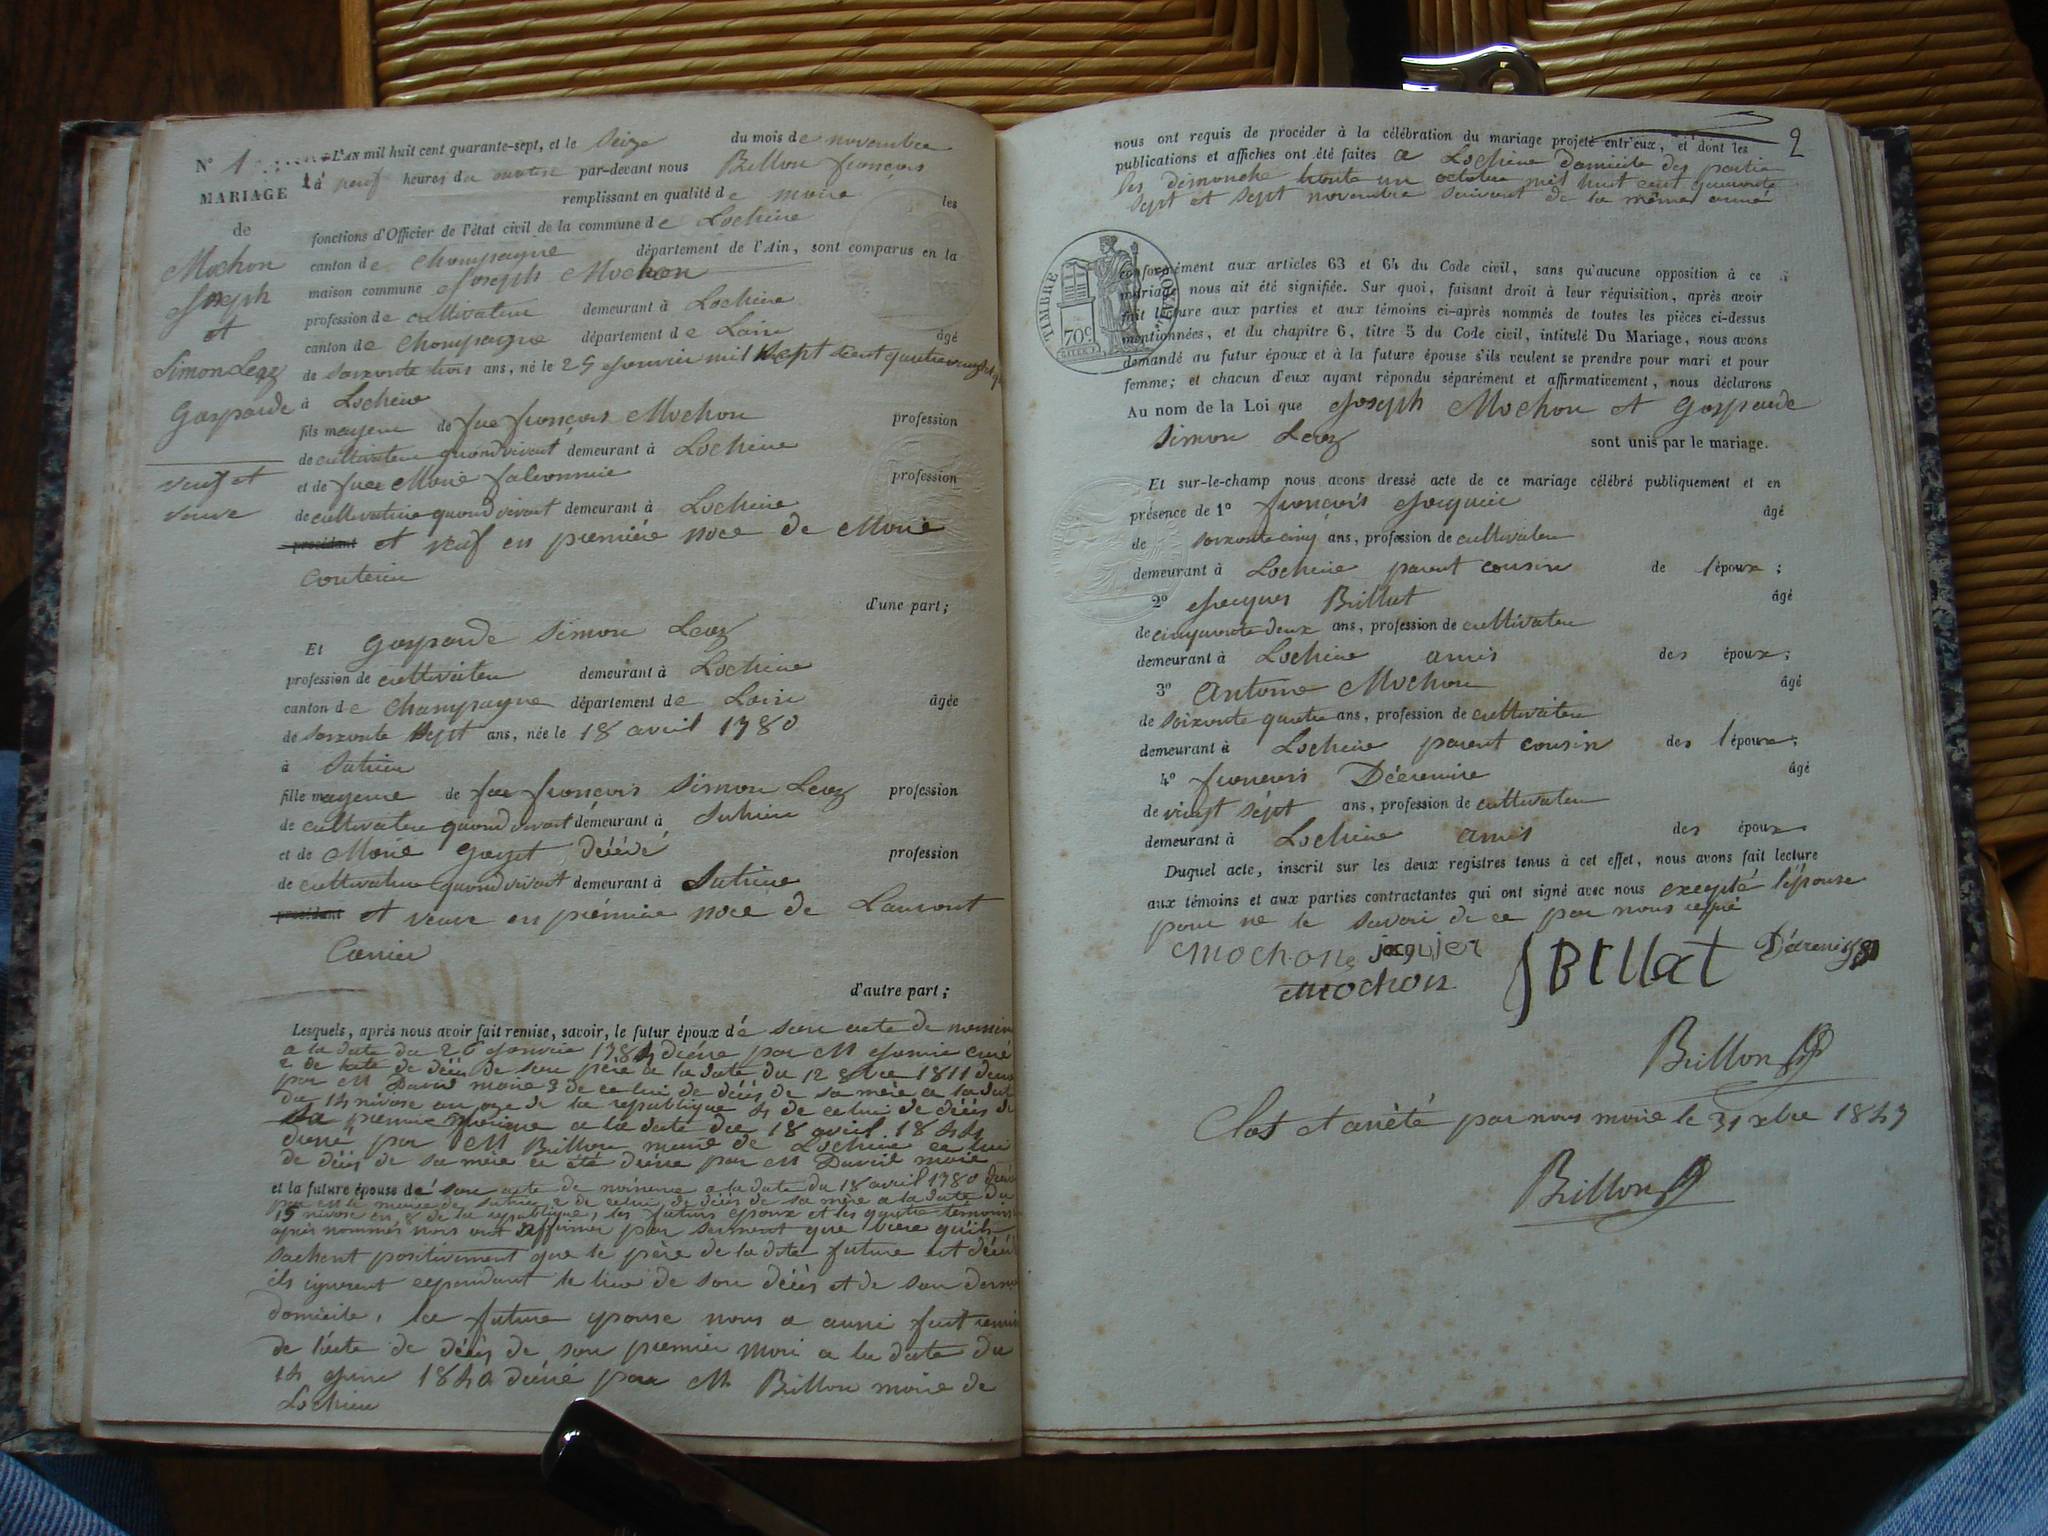 N° 1
MARIAGE
de
Mochon
Joseph
et
Simon Lerez
Gasparde
veuf et
veuve
L'AN mil huit cent quarante-sept, et le seize du mois de novembre
à neuf heures du matin par-devant nous Brillon françois
remplissant en qualité de maire les
fonctions d'Officier de l'état civil de la commune de Lochieu
canton de Champagne département de l'Ain, sont comparus en la
maison commune Joseph Mochon
profession de cultivateur demeurant à Lochieu
canton de Champagne département de Lain âgé
de soixante trois ans, né le 25 janvier mil sept cent quatre vingt
à Lochieu
fils mayeur de feu françois Mochon profession
de cultivateur quand vivait demeurant à Lochieu
et de feue Marie falconnier profession
de cultivatrice quand vivait demeurant à Lochieu
procédant et veuf en première noce de Marie
Couturier
d'une part;
Et Gasparde Simon Lerez
profession de cultivateur demeurant à Lochieu
canton de Champagne département de Lain âgée
de soixante sept ans, née le 18 avril 1780
à Sutrieu
fille mayeure de feu françois Simon Lerez profession
de cultivateur quand vivait demeurant à Sutrieu
et de Marie décédé profession
de cultivatrice quand vivait demeurant à Sutrieu
procédant et veuve en première noce de Laurent
Carrier
d'autre part;
Lesquels, après nous avoir fait remise, savoir, le futur époux dé son acte de
a la date du 26 janvier 1784 par M curé
2 de de décès de son père a la date du 12 8bre 1811
par M David maire 3 de celui de décès de sa mère a la date
du 14 nivose an onze de la republique 4 de celui de décès de
sa première a la date du 18 avril 1844
par M Brillon maire de Lochieu celui
de décès de sa mère a été par M David maire
et la future épouse dé son acte de a la date du 18 avril 1780
par M le maire de Sutrieu 2 de celui de décès de sa mère a la date du
15 nivose an 8 de la republique, les futurs epoux et les quatre temoins
après nommés nous ont affirmer par serment que bien qu'ils
sachent positivement que le père de la dite future est
ils ignorent cependant le lieu de son décès et de son
domicile, la future epouse nous a aussi fait
de l'acte de décès de son premier mari a la date du
14 1840 par M. Brillon maire de
Lochieu
2
nous ont requis de procéder à la célébration du mariage projeté entr'eux, et dont les
publications et affiches ont été faites a Lochieu domicile des partie
les dimanche trente un octobre mil huit cent quarante
sept et sept novembre suivant de la même année
TIMBRE ROYAL
70c
conformément aux articles 63 et 64 du Code civil, sans qu'aucune opposition à ce
mariage nous ait été signifiée. Sur quoi, faisant droit à leur réquisition, après avoir
fait lecture aux parties et aux témoins ci-après nommés de toutes les pièces ci-dessus
mentionnées, et du chapitre 6, titre 5 du Code civil, intitulé Du Mariage, nous avons
demandé au futur époux et à la future épouse s'ils veulent se prendre pour mari et pour
femme; et chacun d'eux ayant répondu séparément et affirmativement, nous déclarons
Au nom de la Loi que Joseph Mochon et Gasparde
Simon Lerez sont unis par le mariage.
Et sur-le-champ nous avons dressé acte de ce mariage célébré publiquement et en
présence de 1° françois Jacquier âgé
de soixante cinq ans, profession de cultivateur
demeurant à Lochieu parent cousin de l'époux;
2° Jacques Brillat âgé
de cinquante deux ans, profession de cultivateur
demeurant à Lochieu amis des époux;
3° Antoine Mochon âgé
de soixante quatre ans, profession de cultivateur
demeurant à Lochieu parent cousin des l'époux;
4° françois Décrenire âgé
de vingt sept ans, profession de cultivateur
demeurant à Lochieu amis des époux
Duquel acte, inscrit sur les deux registres tenus à cet effet, nous avons fait lecture
aux témoins et aux parties contractantes qui ont signé avec nous excepté l'épouse
pour ne le savoir de ce par nous requi
Mochon jacquier
Mochon J Brllat
Brillon
Clos et arrêté par nous maire le 31 xbre 1847
Brillon